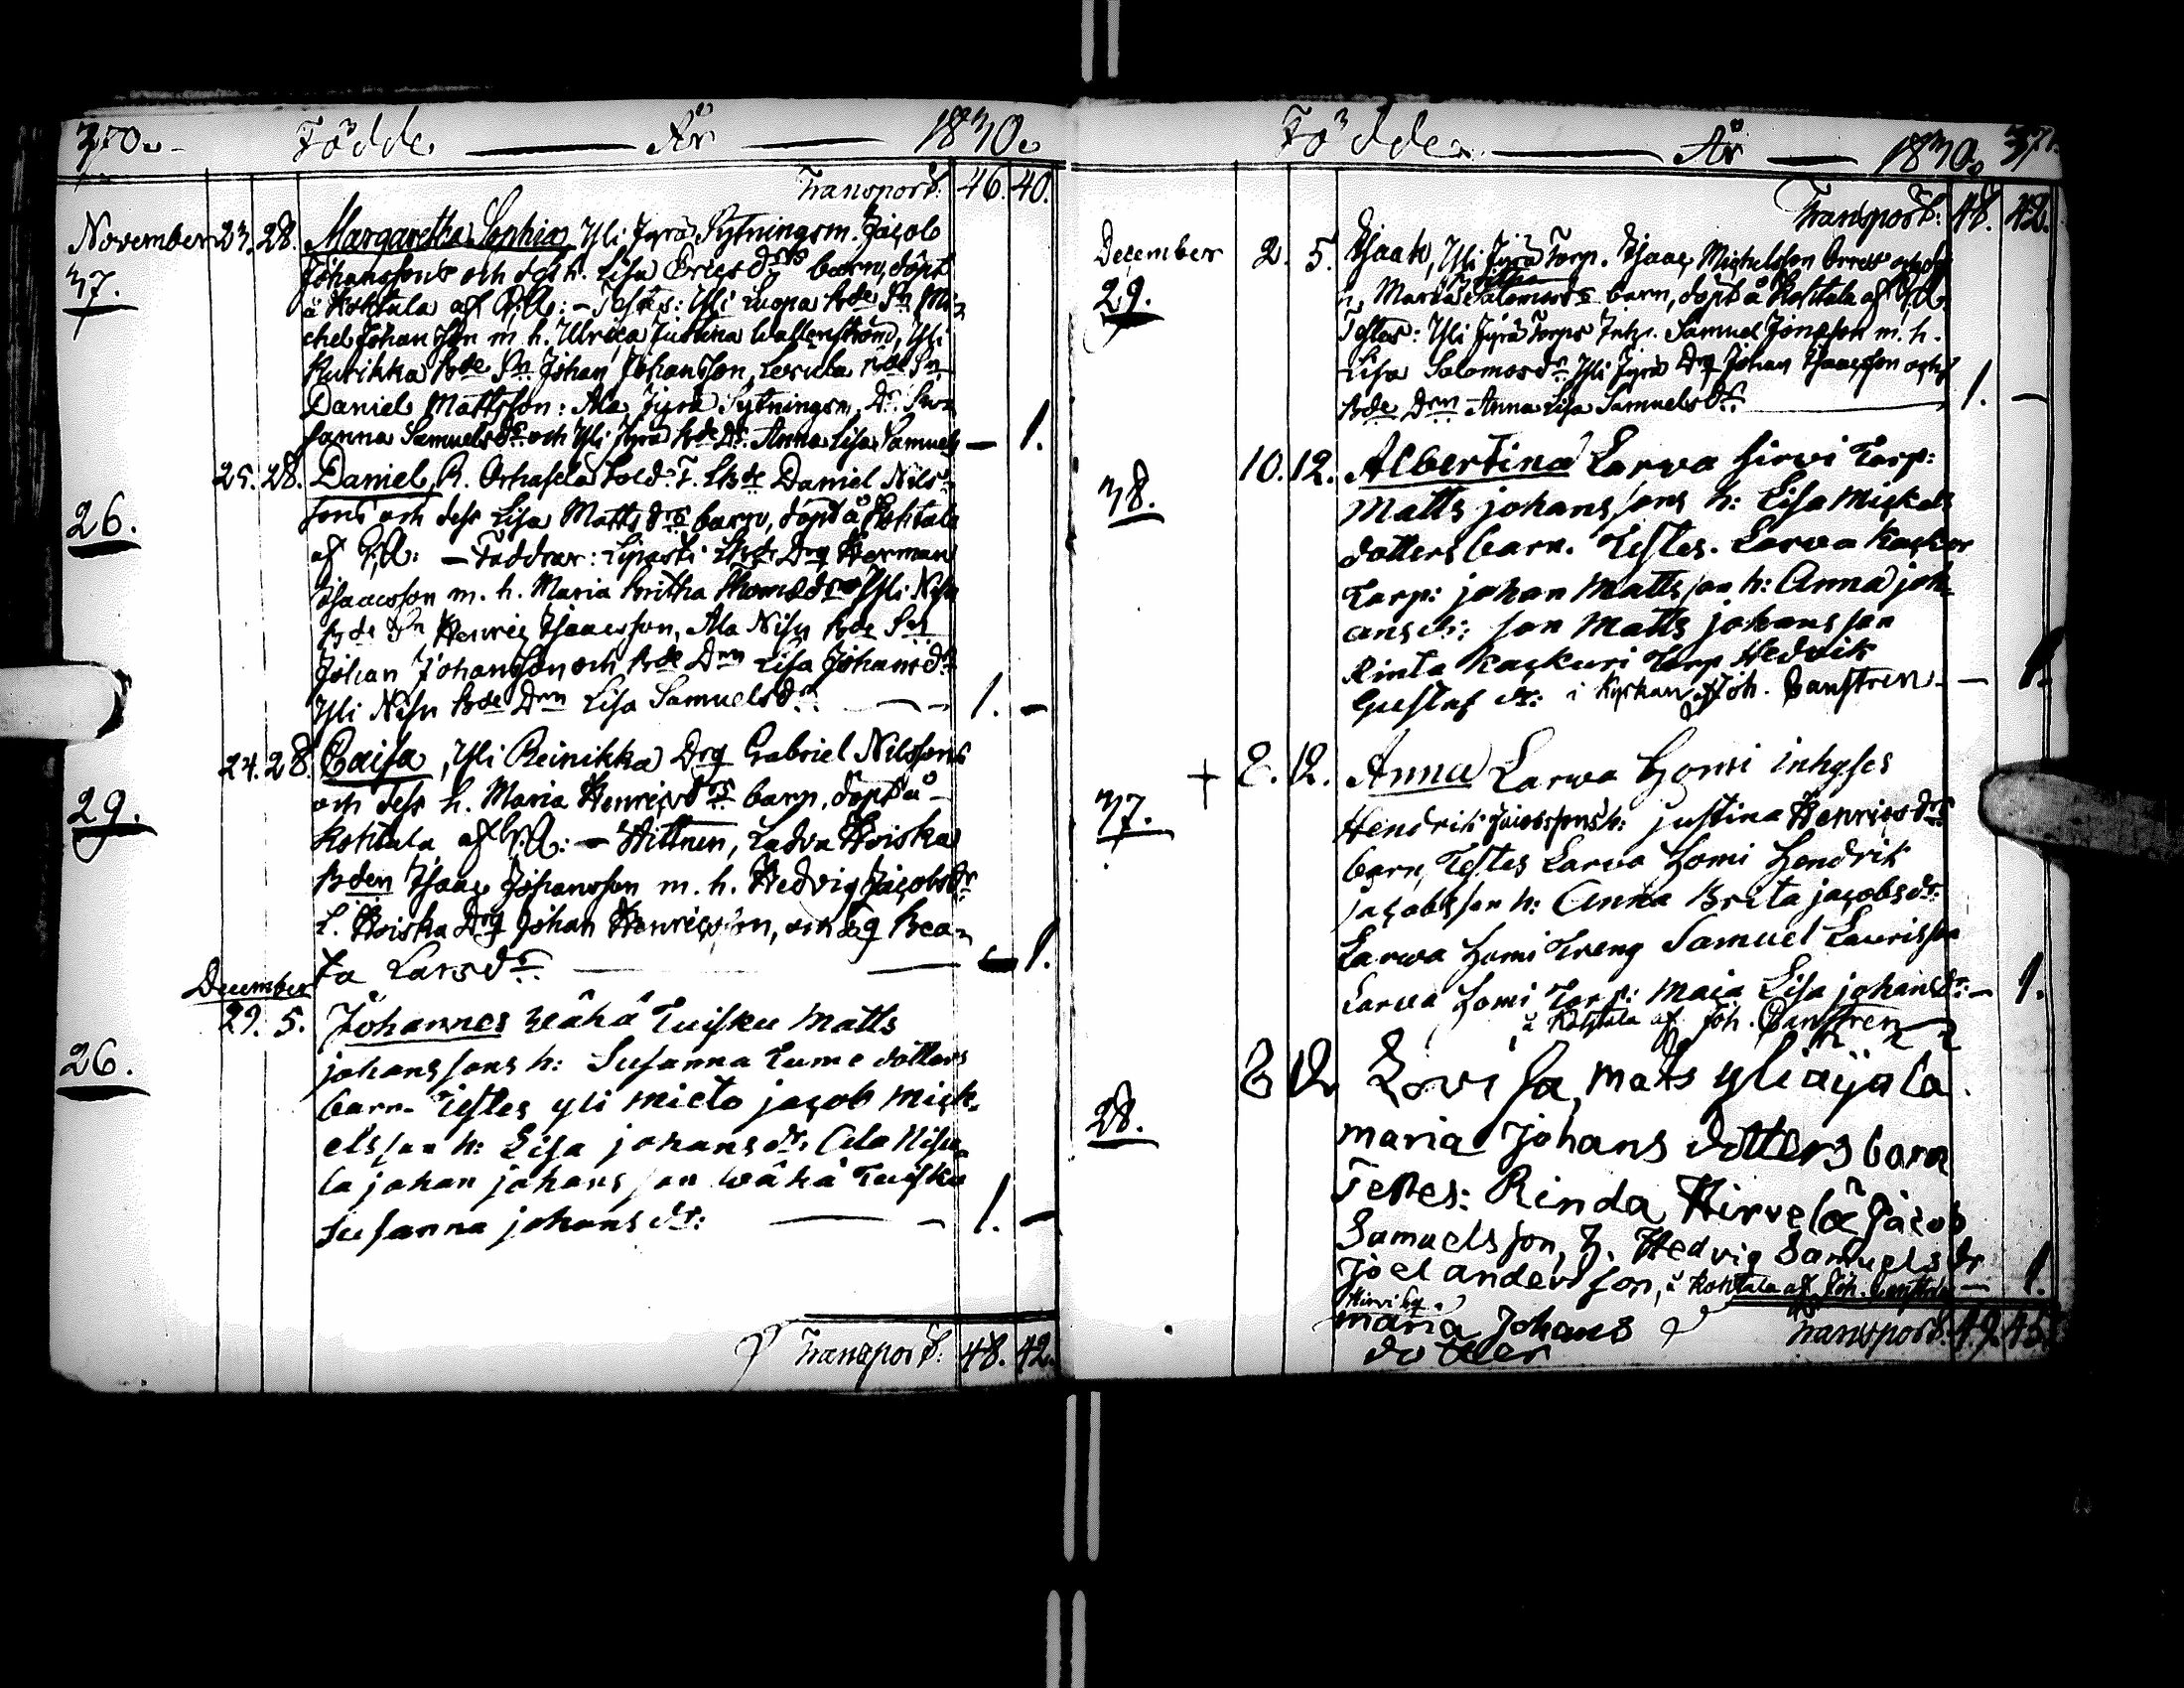 370. Födde År 1830.
Transport: 46. 40.
November 23. 28. Margaretha Sophia, Yli Jyrä Sytningsm. Jacob
Johanssons och dess h. Lisa Erics drs barn, döpt
37. å Kohtala af
chel Johansson m. h. Ulrica Justina Wallenström, Yli
Rutikka Bde Sn Johan Johansson, Bde Sn
Daniel Mattsson: Ala Jyrä Sytningsm. Dr. Su-
sanna Samuelsdr och Yli Jyrä Bde Dr. Anna Lisa Samuels — 1.
25. 28. Daniel, R. Sold. T. Daniel Nils-
26. sons och dess Lisa Matts drs barn, döpt å Kohtala
af — Faddrar: Drg Herman
Isaacsson m. h. Maria Britha Yli Nisu
Bde Sn Henric Isaacsson, Ala Nisu Bde Sn
Johan Johansson och Bde Drn Lisa Johansdr
Yli Nisu Bde Drn Lisa Samuelsdr. 1. —
24. 28. Caisa, Yli Reinikka Drg Gabriel Nilssons
29. och dess h. Maria Henricsdrs barn, döpt å
Kohtala af — Wittnen, Ladva Hoiska
Bden Isaac Johansson m. h. Hedvig Jacobsdr
L. Hoiska Drg Johan Henricsson, och Bea-
ta Larsdr. — 1.
December
29. 5. Johannes Wähä Tuisku Matts
26. johanssons h: Susanna dotters
barn. Testes yli Mieto jacob Mick-
elsson h: Lisa johans dr. Ala Nisu-
la johan johansson Wähä Tuisku
Susanna johans dr: 1. —
Transport: 48. 42.
Födde År 1830. 371.
Transport: 48. 42.
December 2. 5. Isaak, Yli Jyrä Torp. Isaac Michelsson Orres och
29. h. Maria Salomons drs barn, döpt å Kohtala af
Testes: Yli Jyrä Torps Inh. Samuel Jonasson m. h.
Lisa Salomonsdr. Yli Jyrä Drg Johan Isaacsson och
Bde Drn Anna Lisa Samuelsdr. 1. —
10. 12. Albertina Larwa hirvi Torp:
38. Matts johanssons h: Lisa Mickels
dotters barn. Testes. Larwa Kackur
Torp: johan Mattsson h: Anna joh-
ans dr: son Matts johansson
Rinta Kackuri Torp Hedvik
Gustaf dr: i Kyrkan af Joh. — 1.
+ 8. 12. Anna Larwa Homi inhyses
37. Hendrik Jacobssons h: justina Henrics drs
barn, Testes Larwa Homi Hendrik
jacobsson h: Anna Brita jacobsdr:
Larwa Homi Dreng Samuel Laurisson
Larwa Homi Torp: Maia Lisa johansdr: — 1.
å Kohtala af Joh.
8 12 Lovisa, mats yliäijälä
28. maria Johans dotters barn
Testes: Rinda Hirvelä Jacob
Samuelsson, h. Hedvig Samuels dr
Joel andersson, å Kohtala af Joh. — 1.
Hirvi
maria Johans
dotter
Transport: 49. 45.